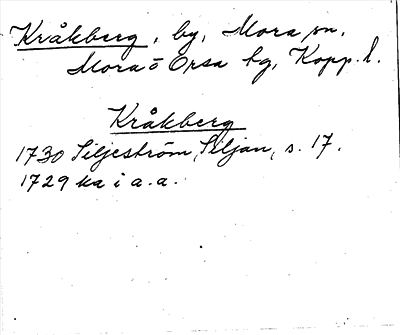 Kråkberg, by, Mora sn.
Mora o Orsa tg, Kopp. l.
Kråkberg
1730 Siljeström, Siljan, s. 17.
1729 ka i a.a.